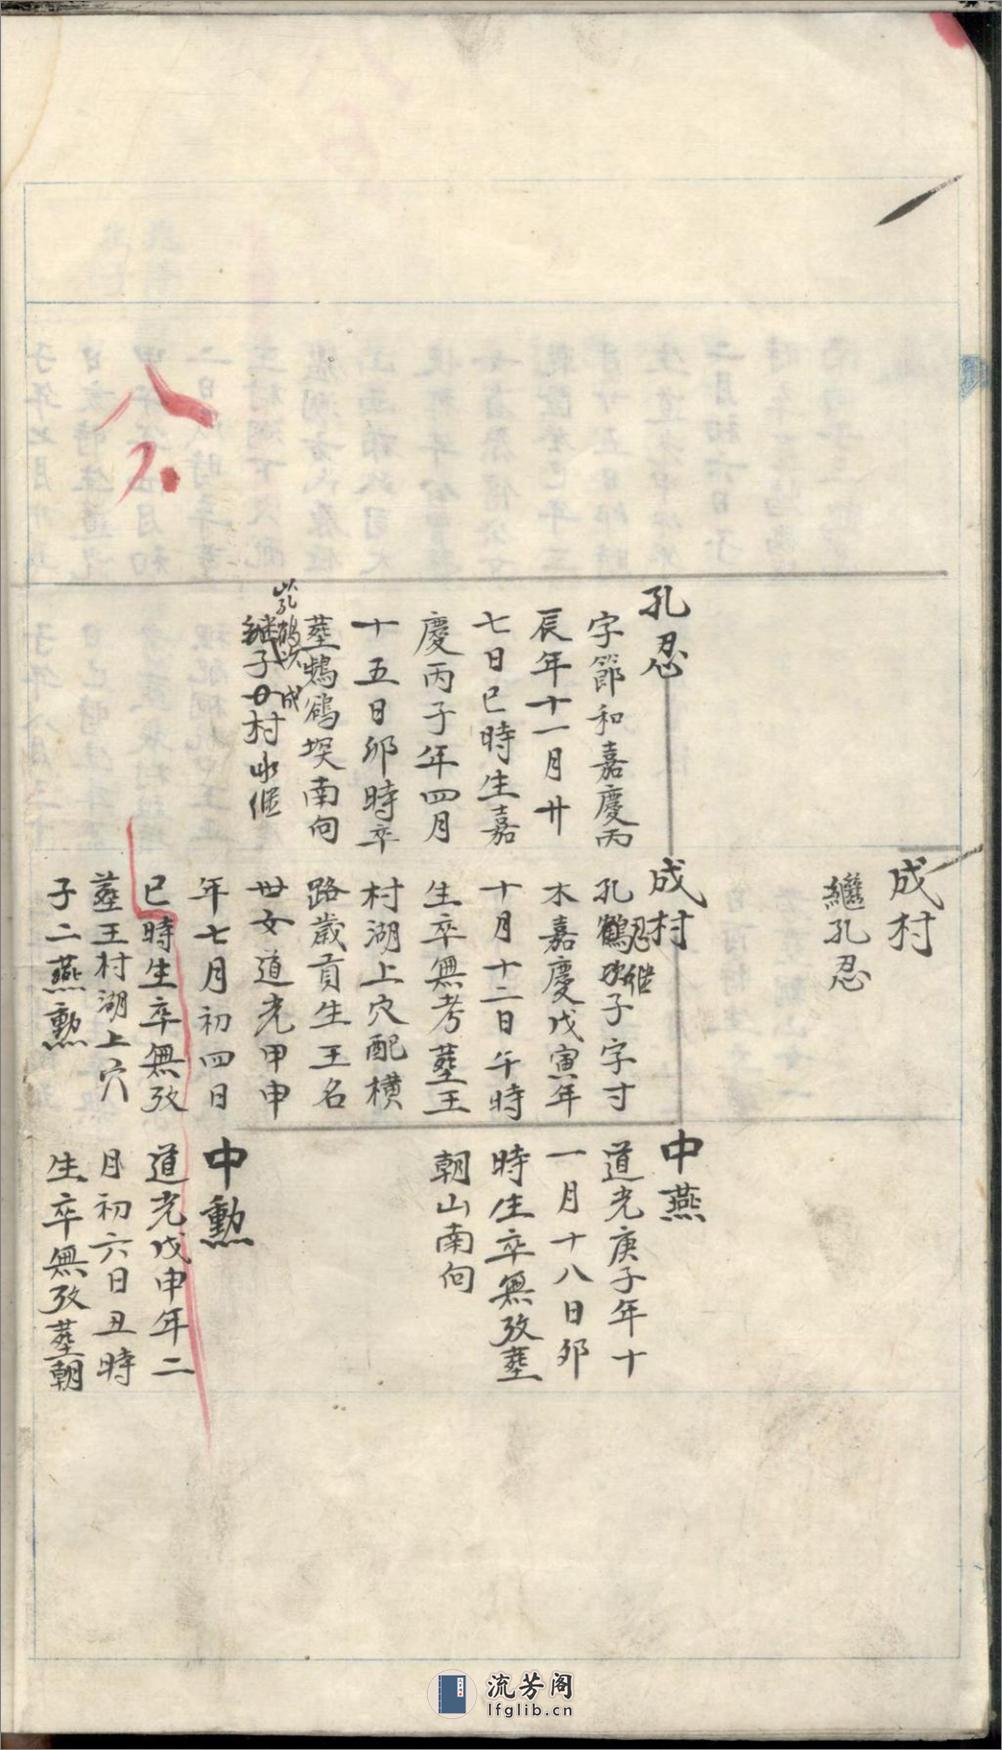 孔忍
字節和嘉慶丙
辰年十一月廿
七日巳時生嘉
慶丙子年四月
十五日卯時卒
塟鷓鴣堘南向
以孔鶴次
成
継子村
成村
繼孔忍
成村
孔鶴次子字寸
忍継
木嘉慶戊寅年
十月十二日午時
生卒無考塟王
村湖上穴配橫
路歲貢生王名
世女道光甲申
年七月初四日
巳時生卒無攷
塟王村湖上穴
子二燕勲
中燕
道光庚子年十
一月十八日卯
時生卒無攷塟
朝山南向
中勲
道光戊申年二
月初六日丑時
生卒無攷塟朝
流芳阁
lfglib.cn